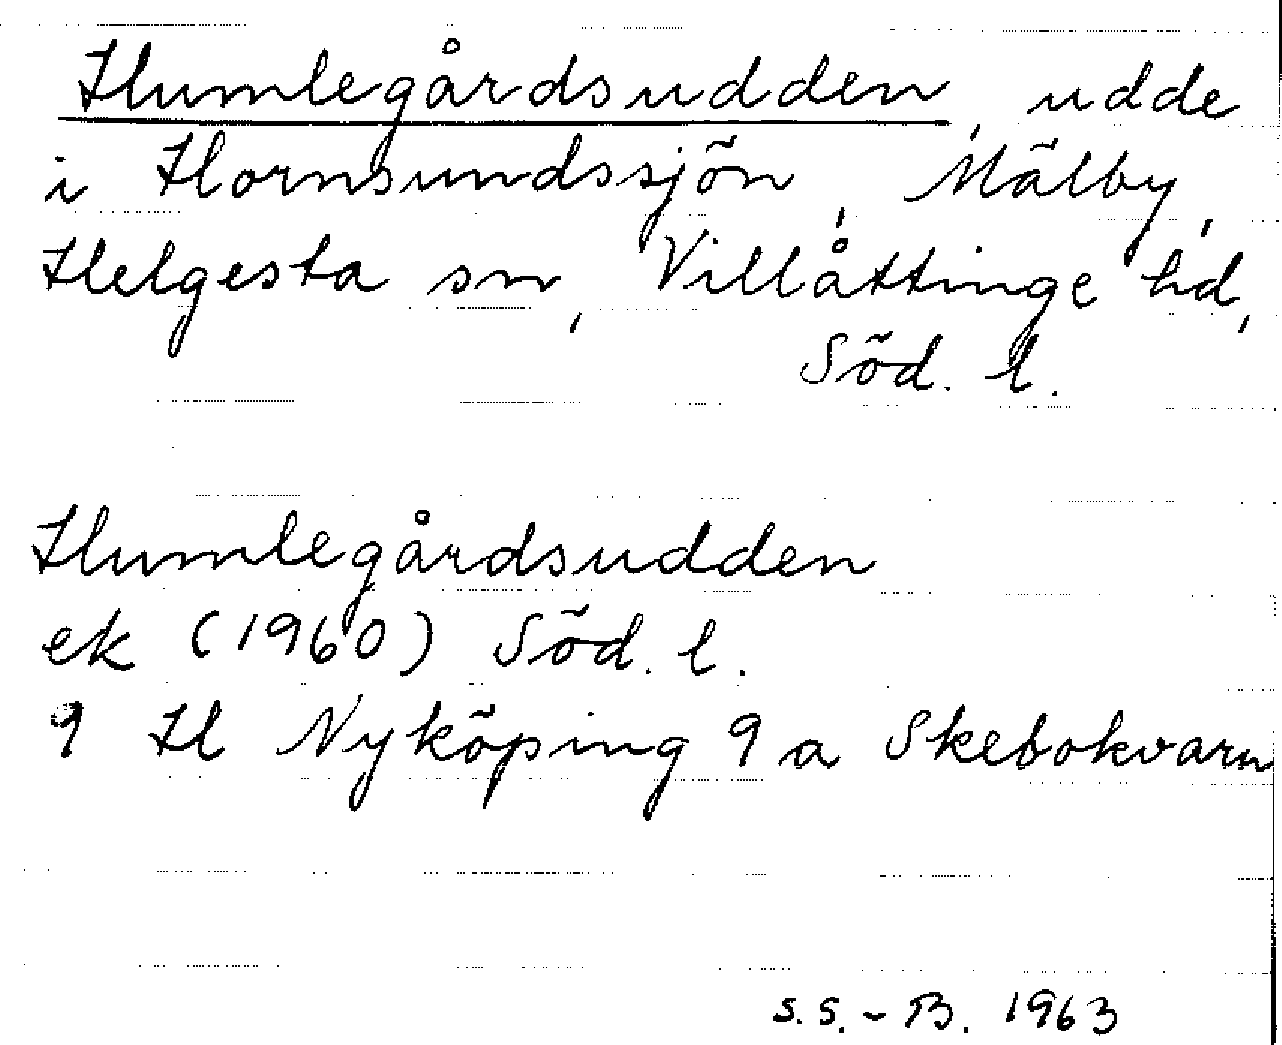 Humlegårdsudden, udde
i Hornsundssjön, Mälby,
Helgesta sn, Villåttinge hd,
Söd. l.
Humlegårdsudden
ek (1960) Söd. l.
9 H Nyköping 9 a Skebokvarn
S.S.-B. 1963